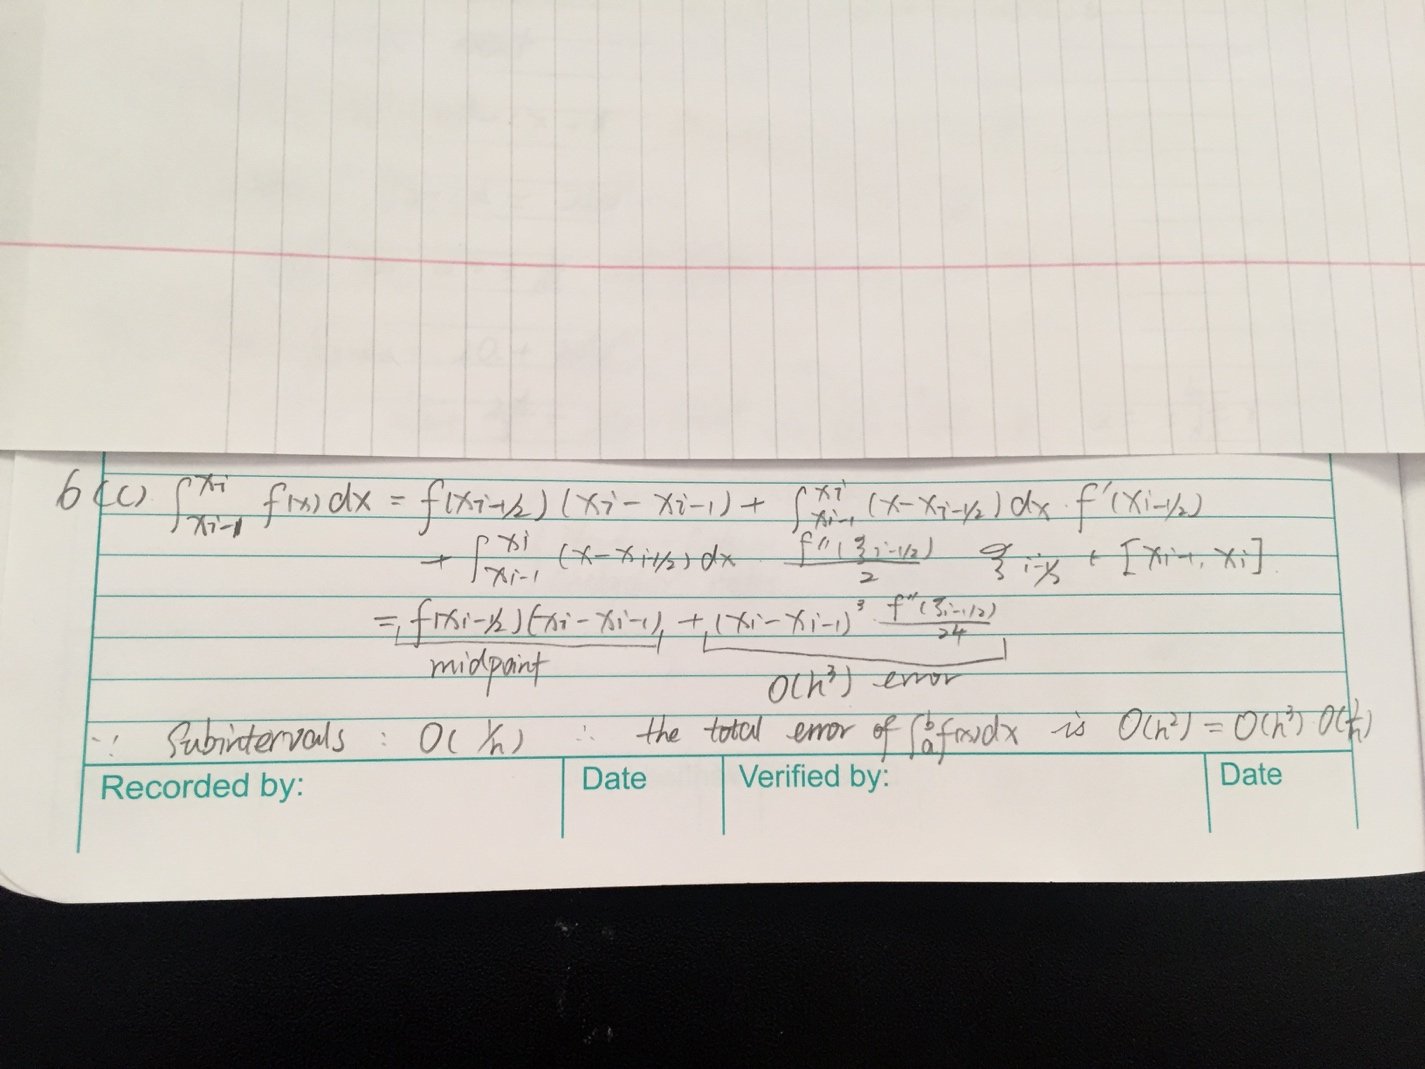 6(c) ∫_{xi-1}^{xi} f(x) dx = f(xi-1/2) (xi - xi-1) + ∫_{xi-1}^{xi} (x - xi-1/2) dx · f'(xi-1/2)
+ ∫_{xi-1}^{xi} (x - xi-1/2) dx f''(ξi-1/2)/2 ξi-1/2 ∈ [xi-1, xi]
= f(xi-1/2)(xi - xi-1) + (xi - xi-1)³ · f''(ξi-1/2)/24
midpoint O(h³) error
∵ Subintervals : O(1/h) ∴ the total error of ∫_a^b f(x)dx is O(h²) = O(h³)·O(1/h)
Recorded by: Date Verified by: Date